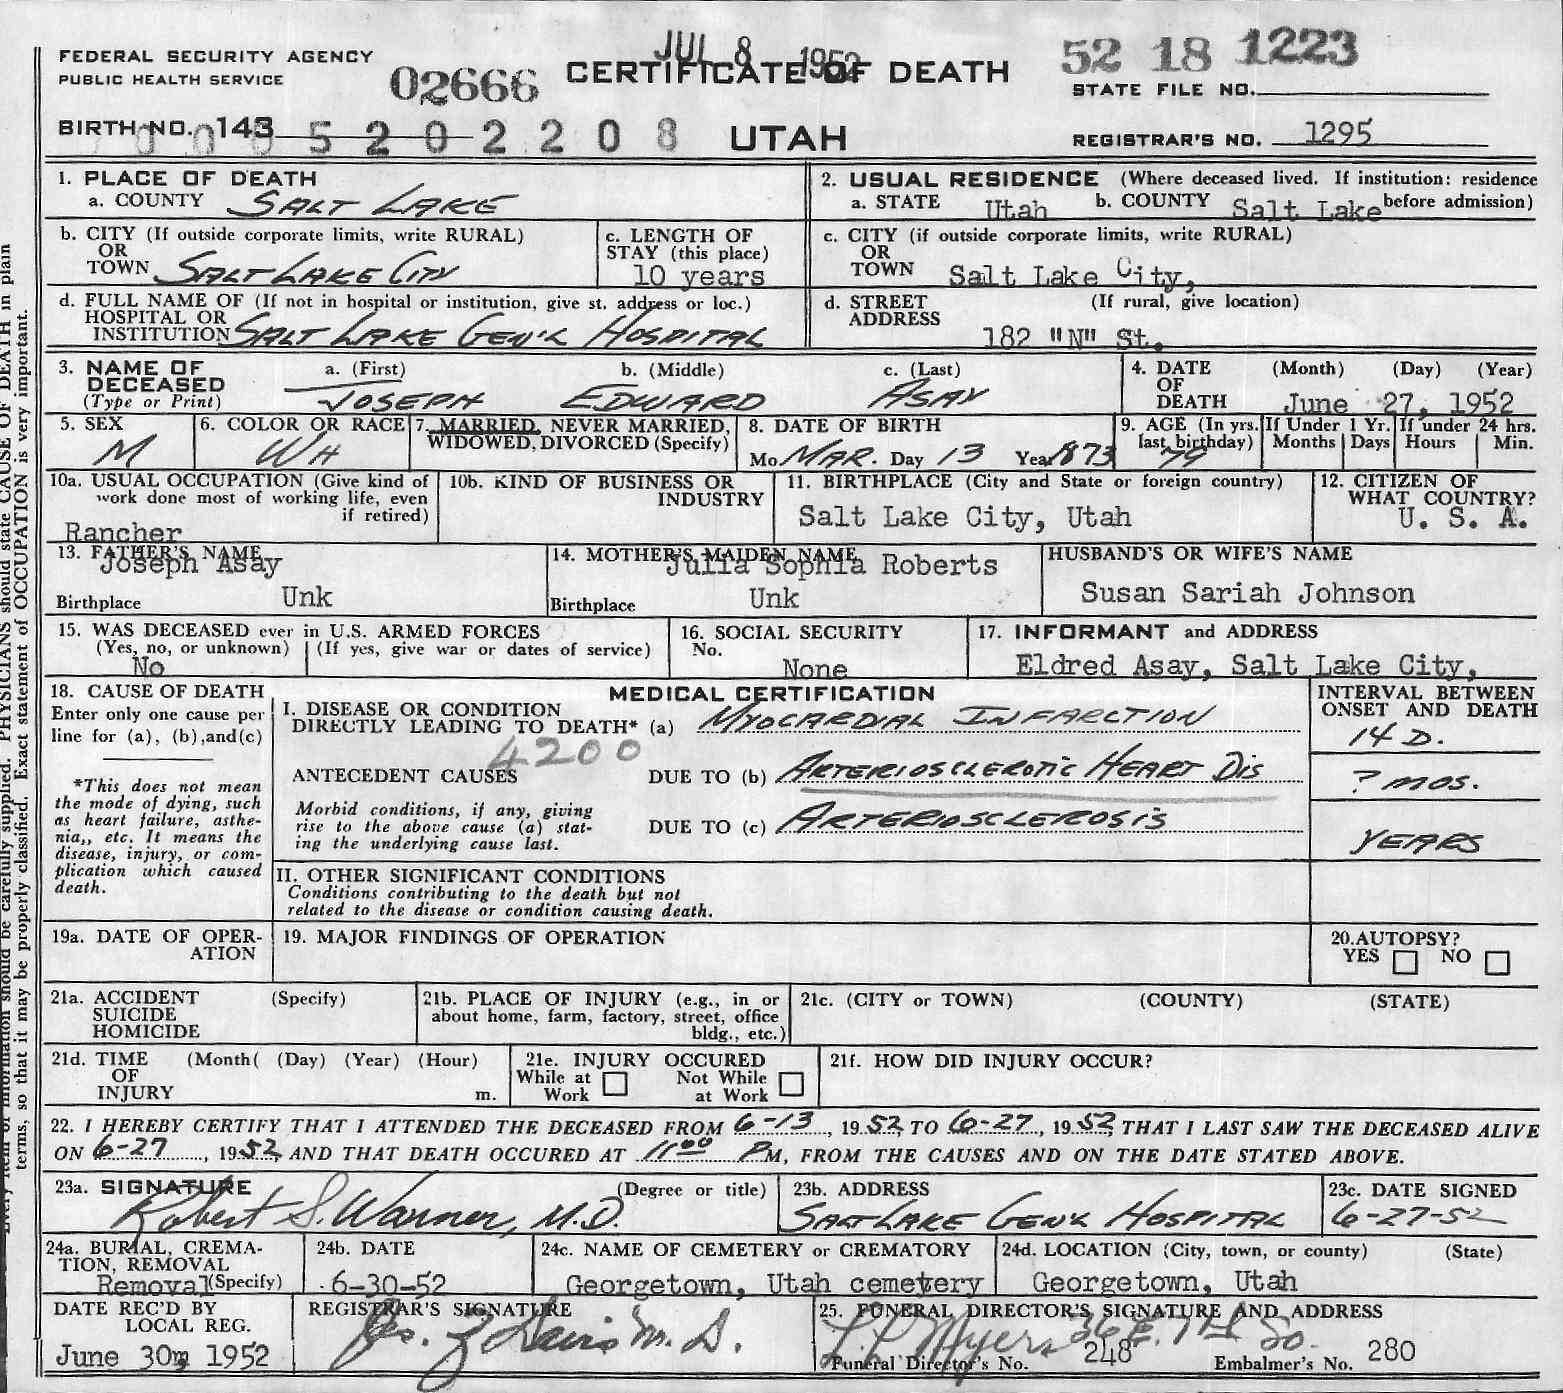 JUL 8 1952
FEDERAL SECURITY AGENCY
PUBLIC HEALTH SERVICE
02666
CERTIFICATE OF DEATH
52 18 1223
STATE FILE NO.
BIRTH NO. 143
5 2 0 2 2 0 8
UTAH
REGISTRAR'S NO. 1295
1. PLACE OF DEATH
a. COUNTY SALT LAKE
2. USUAL RESIDENCE (Where deceased lived. If institution: residence before admission)
a. STATE Utah b. COUNTY Salt Lake
b. CITY (If outside corporate limits, write RURAL)
OR
TOWN SALT LAKE CITY
c. LENGTH OF
STAY (this place)
10 years
c. CITY (if outside corporate limits, write RURAL)
OR
TOWN Salt Lake City,
d. FULL NAME OF (If not in hospital or institution, give st. address or loc.)
HOSPITAL OR
INSTITUTION SALT LAKE GEN'L HOSPITAL
d. STREET (If rural, give location)
ADDRESS
182 "N" St.
3. NAME OF
DECEASED
(Type or Print)
a. (First) b. (Middle) c. (Last)
JOSEPH EDWARD ASAY
4. DATE (Month) (Day) (Year)
OF
DEATH June 27, 1952
5. SEX
M
6. COLOR OR RACE
WH
7. MARRIED, NEVER MARRIED,
WIDOWED, DIVORCED (Specify)
8. DATE OF BIRTH
Mo. MAR. Day 13 Year 1873
9. AGE (In yrs.
last birthday)
79
If Under 1 Yr.
Months Days
If under 24 hrs.
Hours Min.
10a. USUAL OCCUPATION (Give kind of
work done most of working life, even
if retired)
Rancher
10b. KIND OF BUSINESS OR
INDUSTRY
11. BIRTHPLACE (City and State or foreign country)
Salt Lake City, Utah
12. CITIZEN OF
WHAT COUNTRY?
U. S. A.
13. FATHER'S NAME
Joseph Asay
Birthplace Unk
14. MOTHER'S MAIDEN NAME
Julia Sophia Roberts
Birthplace Unk
HUSBAND'S OR WIFE'S NAME
Susan Sariah Johnson
15. WAS DECEASED ever in U.S. ARMED FORCES
(Yes, no, or unknown) (If yes, give war or dates of service)
No
16. SOCIAL SECURITY
No.
None
17. INFORMANT and ADDRESS
Eldred Asay, Salt Lake City,
18. CAUSE OF DEATH
Enter only one cause per
line for (a), (b), and (c)
*This does not mean
the mode of dying, such
as heart failure, asthe-
nia,, etc. It means the
disease, injury, or com-
plication which caused
death.
MEDICAL CERTIFICATION
I. DISEASE OR CONDITION
DIRECTLY LEADING TO DEATH* (a) MYOCARDIAL INFARCTION
4200
ANTECEDENT CAUSES DUE TO (b) ARTERIOSCLEROTIC HEART DIS
Morbid conditions, if any, giving
rise to the above cause (a) stat-
ing the underlying cause last.
DUE TO (c) ARTERIOSCLEROSIS
INTERVAL BETWEEN
ONSET AND DEATH
14 D.
? MOS.
YEARS
II. OTHER SIGNIFICANT CONDITIONS
Conditions contributing to the death but not
related to the disease or condition causing death.
19a. DATE OF OPER-
ATION
19. MAJOR FINDINGS OF OPERATION
20. AUTOPSY?
YES NO
21a. ACCIDENT (Specify)
SUICIDE
HOMICIDE
21b. PLACE OF INJURY (e.g., in or
about home, farm, factory, street, office
bldg., etc.)
21c. (CITY or TOWN) (COUNTY) (STATE)
21d. TIME (Month( (Day) (Year) (Hour)
OF
INJURY m.
21e. INJURY OCCURED
While at Work Not While at Work
21f. HOW DID INJURY OCCUR?
22. I HEREBY CERTIFY THAT I ATTENDED THE DECEASED FROM 6-13, 1952, TO 6-27, 1952, THAT I LAST SAW THE DECEASED ALIVE
ON 6-27, 1952, AND THAT DEATH OCCURED AT 11:00 P M, FROM THE CAUSES AND ON THE DATE STATED ABOVE.
23a. SIGNATURE (Degree or title)
Robert S. Warner, M.D.
23b. ADDRESS
SALT LAKE GEN'L HOSPITAL
23c. DATE SIGNED
6-27-52
24a. BURIAL, CREMA-
TION, REMOVAL
Removal (Specify)
24b. DATE
6-30-52
24c. NAME OF CEMETERY or CREMATORY
Georgetown, Utah cemetery
24d. LOCATION (City, town, or county) (State)
Georgetown, Utah
DATE REC'D BY
LOCAL REG.
June 30, 1952
REGISTRAR'S SIGNATURE
Davis M. D.
25. FUNERAL DIRECTOR'S SIGNATURE AND ADDRESS
Myers 36 E. 7th So.
Funeral Director's No. 248 Embalmer's No. 280
terms, so that it may be properly classified. Exact statement of OCCUPATION is very important.
information should be carefully supplied. PHYSICIANS should state CAUSE OF DEATH in plain